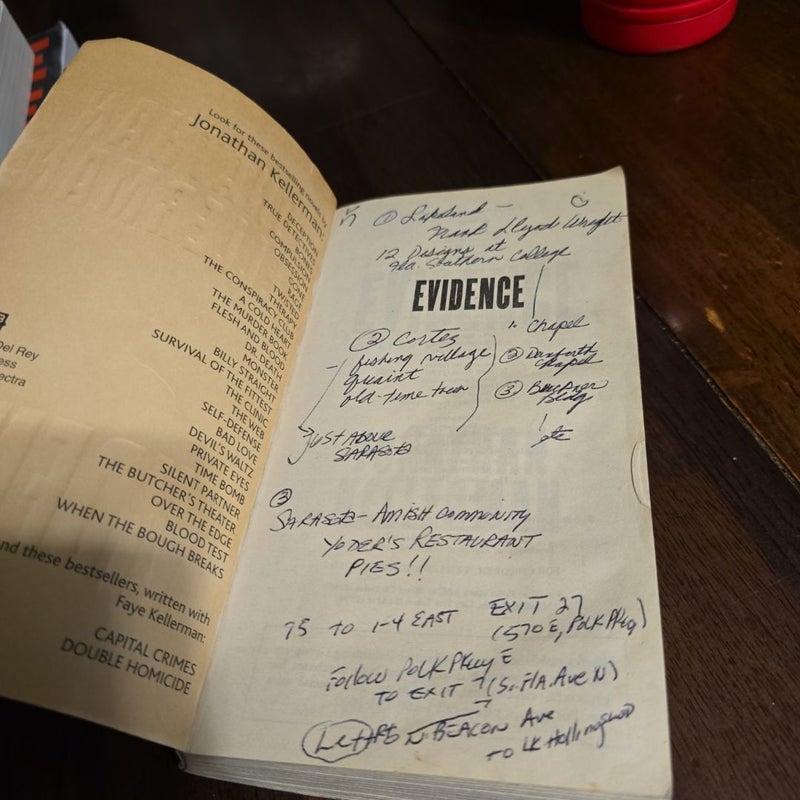 Look for these bestselling novels by
Jonathan Kellerman:
DECEPTION
TRUE DETECTIVES
BONES
COMPULSION
OBSESSION
GONE
RAGE
TWISTED
THERAPY
THE CONSPIRACY CLUB
A COLD HEART
THE MURDER BOOK
FLESH AND BLOOD
DR. DEATH
MONSTER
BILLY STRAIGHT
SURVIVAL OF THE FITTEST
THE CLINIC
THE WEB
SELF-DEFENSE
BAD LOVE
DEVIL'S WALTZ
PRIVATE EYES
TIME BOMB
SILENT PARTNER
THE BUTCHER'S THEATER
OVER THE EDGE
BLOOD TEST
WHEN THE BOUGH BREAKS
nd these bestsellers, written with
Faye Kellerman:
CAPITAL CRIMES
DOUBLE HOMICIDE
Del Rey
ess
ectra
① Lakeland -
Frank Lloyd Wright
12 Designs at
Fla. Southern College
EVIDENCE
Chapel
② Danforth
Chapel
③
Bldg
etc
② Cortez
fishing village
quaint
old-time town
JUST ABOVE
SARASOTA
③
SARASOTA - AMISH COMMUNITY
YODER'S RESTAURANT
PIES!!
75 TO I-4 EAST EXIT 27
(570 E, POLK PKwy)
Follow POLK PKwy E
TO EXIT 7 (So. FLA. Ave N)
BEACON Ave
TO LK Hollingswd